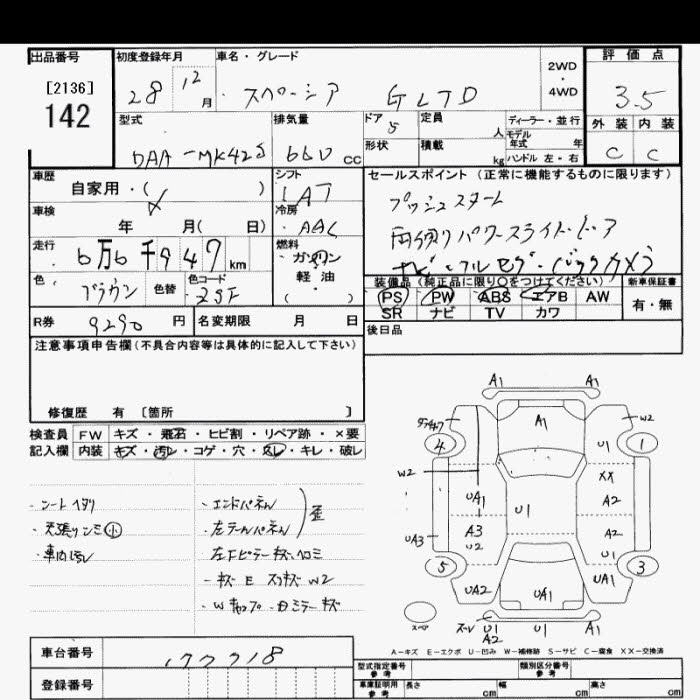 出品番号
[2136]
142
初度登録年月
28 12 月
車名・グレード
スペーシア G LTD
2WD
・
4WD
評価点
3.5
外装 内装
C C
型式
DAA-MK42S
排気量
660 cc
ドア
5
形状
定員
人
積載
kg
ディーラー・並行
モデル
年式 年
ハンドル 左・右
車歴
自家用・( )
車検
年 月( 日)
走行
6万6千947 km
色
ブラウン
色替
色コード
シフト
IAT
冷房
AAC
燃料
ガソリン
・
軽油
( )
セールスポイント (正常に機能するものに限ります)
プッシュスタート
両側パワースライドドア
ナビ・フルセグ・バックカメラ
装備品 (純正品に限り○をつけてください)
PS PW ABS エアB AW
SR ナビ TV カワ
新車保証書
有・無
R券
9290 円
名変期限 月 日
後日品
注意事項申告欄 (不具合内容等は具体的に記入して下さい)
修復歴 有 〔箇所 〕
検査員 FW キズ・飛石・ヒビ割・リペア跡・×要
記入欄 内装 キズ・汚れ・コゲ・穴・欠レ・キレ・破レ
・シートヘタリ
・天張リシミ小
・車内汚レ
・エンドパネル
・左テールパネル
歪
左下ピラーキズヘコミ
・キズ E スリキズ W2
・Wキャップ・ミラーキズ
A1 A1
A1
W2
4 1
U1
W2
XX
UA1 A2
U1
UA3 A3 A2
U2 U1
5 3
UA2 UA1 UA1
スペア
U1 U1 A1
A2
A-キズ E-エクボ U-凹み W-補修跡 S-サビ C-腐食 XX-交換済
車台番号
177718
登録番号
型式指定番号
参考
類別区分番号
参考
車庫証明用
参考
長さ cm
幅 cm
高さ cm